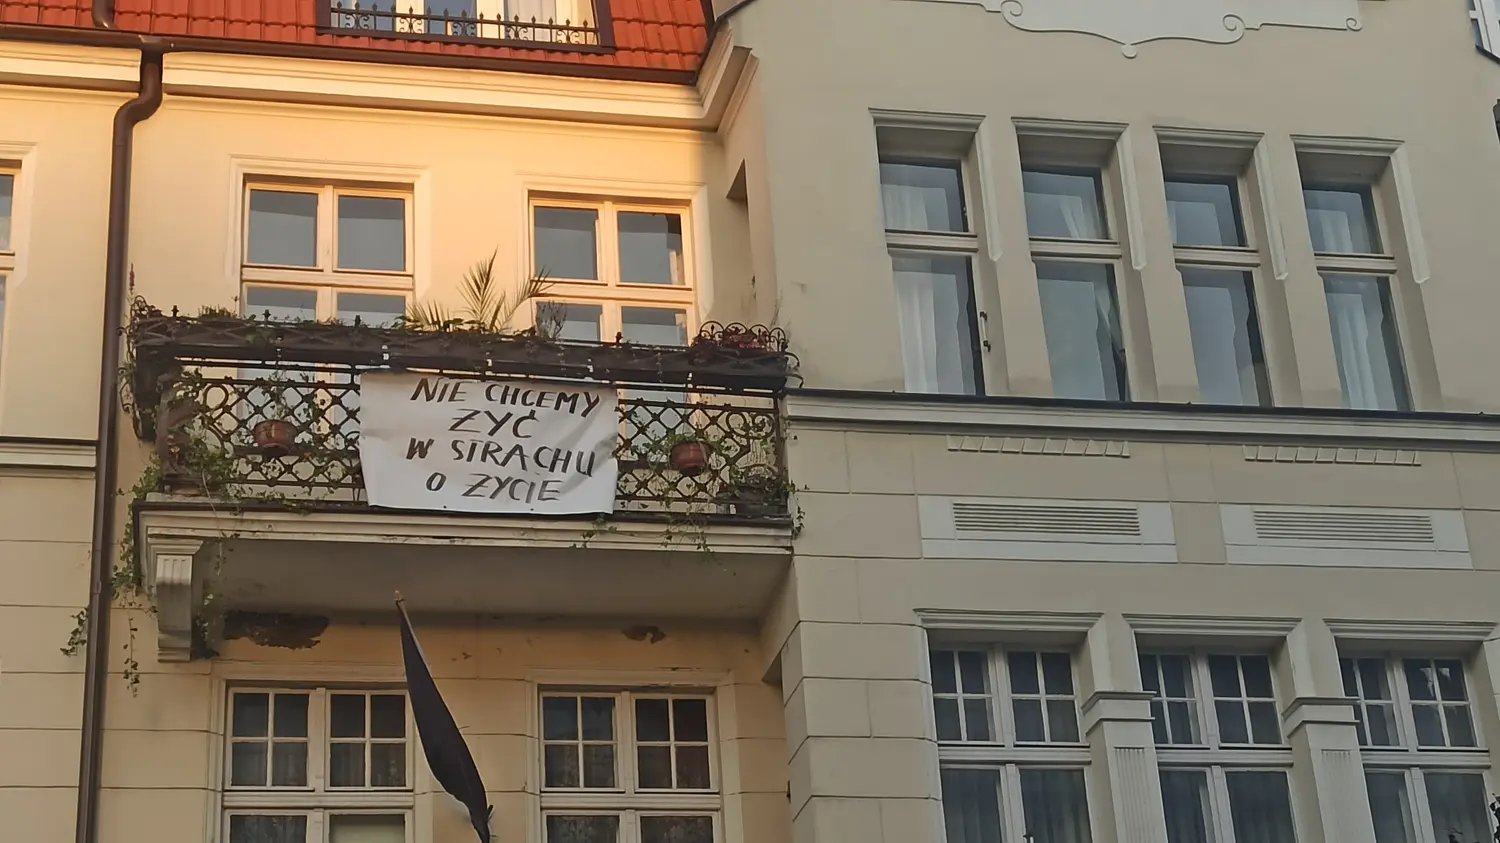 NIE CHCEMY
ŻYĆ
W STRACHU
O ŻYCIE